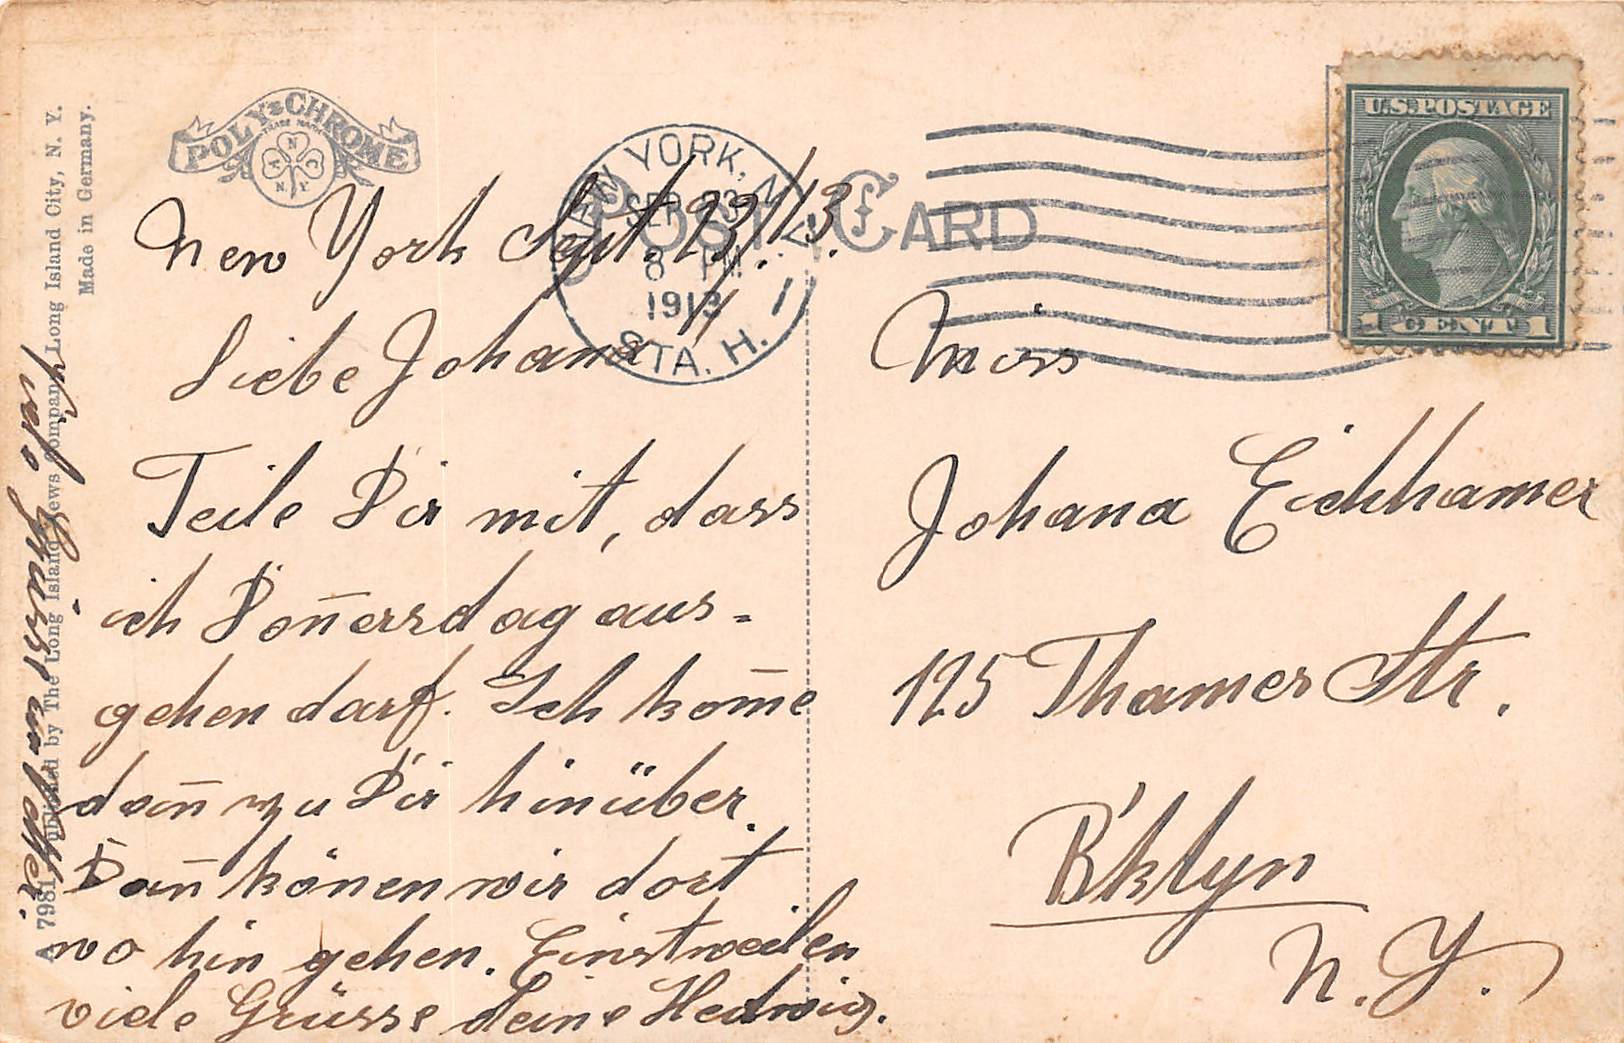 POLY-CHROME
TRADE MARK
A N C
N. Y.
POST CARD
NEW YORK, N.Y.
SEP 23
8 PM
1913
STA. H.
1
U.S. POSTAGE
1 CENT 1
A 7981 Published by The Long Island News Company, Long Island City, N. Y.
Made in Germany.
New York Sept. 23./13.
Liebe Johana!
Teile Dir mit, dass
ich Doñersdag aus-
gehen darf. Ich kom̄e
dan̄ zu Dir hinüber.
Dan̄ könen wir dort
wo hin gehen. Einstweilen
viele Grüsse deine Hedwig.
Grüsse
Miss
Johana Eichhamer
125 Thames Str.
B'klyn
N. Y.